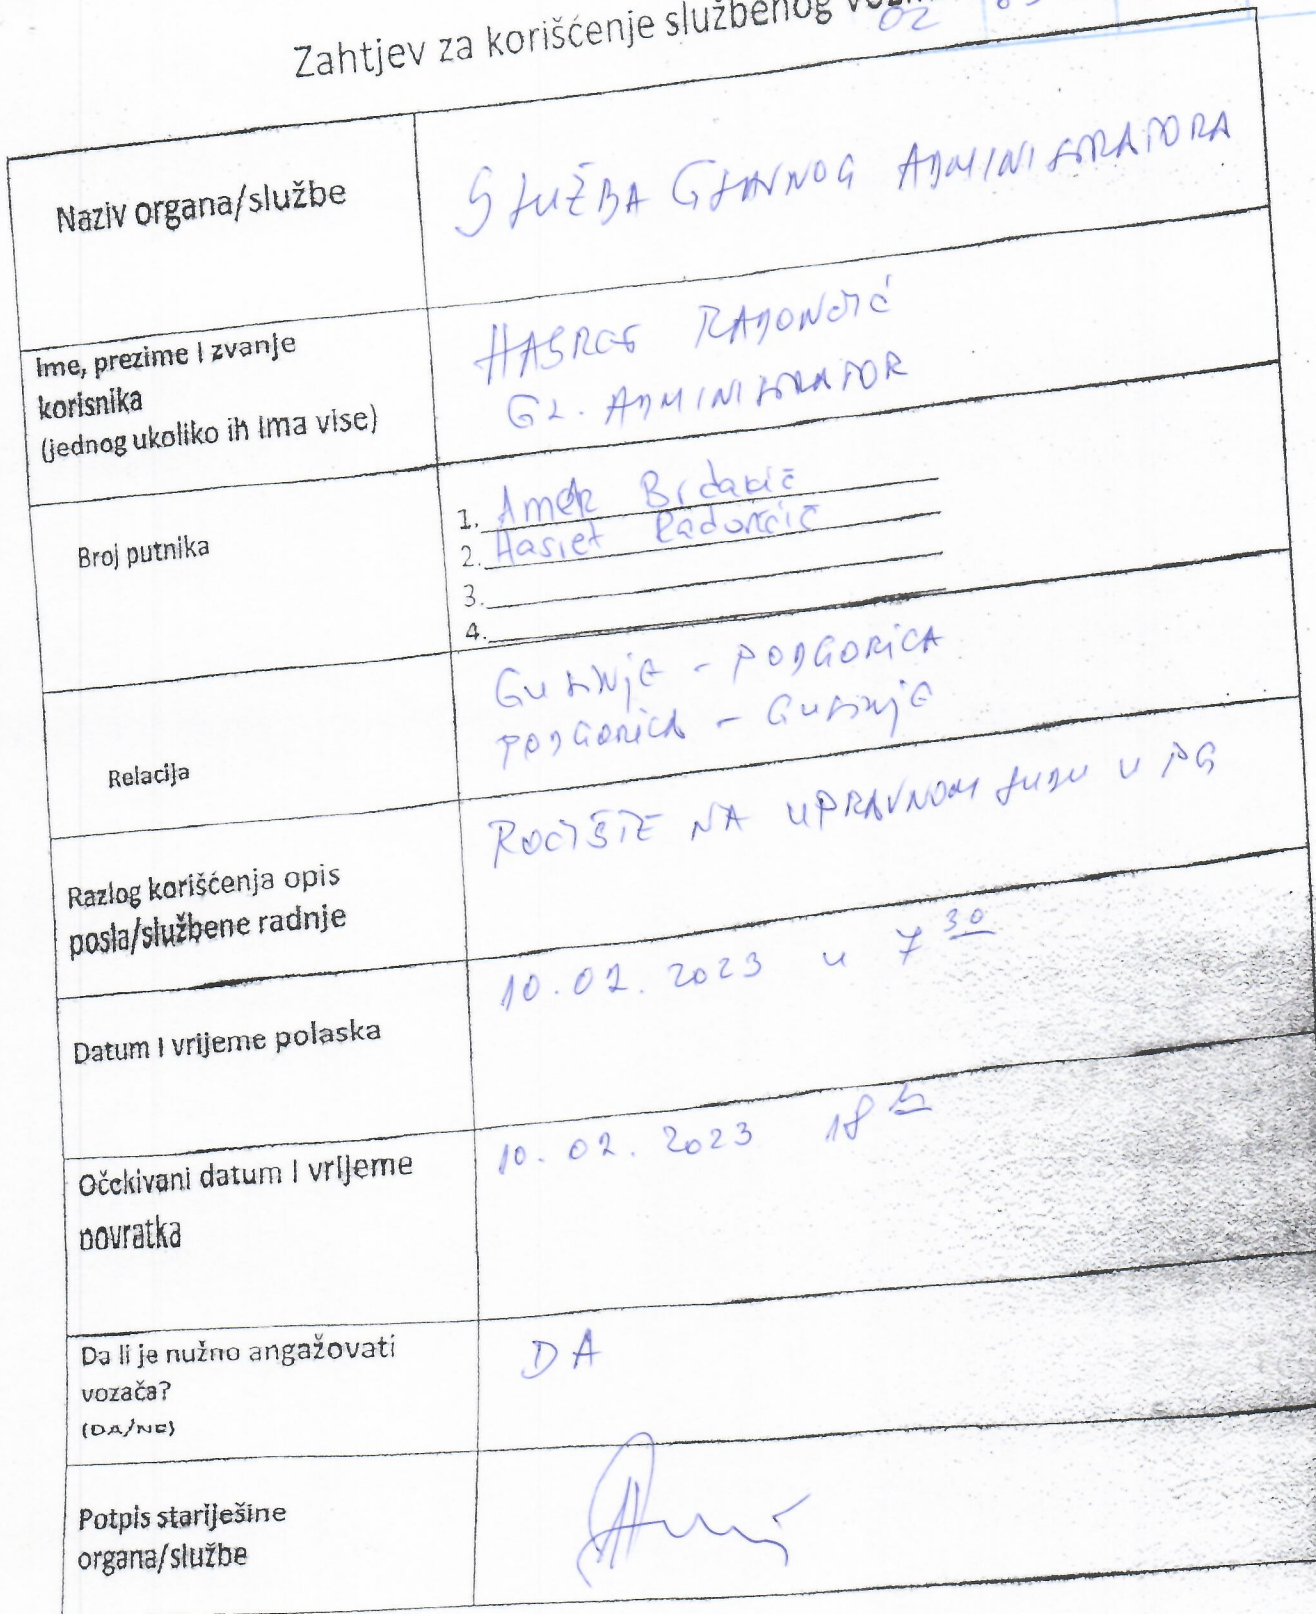 Zahtjev za korišćenje službenog
02
Naziv organa/službe
SLUŽBA GLAVNOG ADMINISTRATORA
Ime, prezime I zvanje
korisnika
(jednog ukoliko ih ima vise)
HASRET RADONČIĆ
GL. ADMINISTRATOR
Broj putnika
1. Amer Brdakić
2. Hasret Radončić
3.
4.
Relacija
GUSINJE - PODGORICA
PODGORICA - GUSINJE
Razlog korišćenja opis
posla/službene radnje
ROČIŠTE NA UPRAVNOM SUDU U PG
Datum I vrijeme polaska
10.02.2023 u 7 30
Očekivani datum I vrijeme
povratka
10.02.2023 18 h
Da li je nužno angažovati
vozača?
(DA/NE)
DA
Potpis starješine
organa/službe